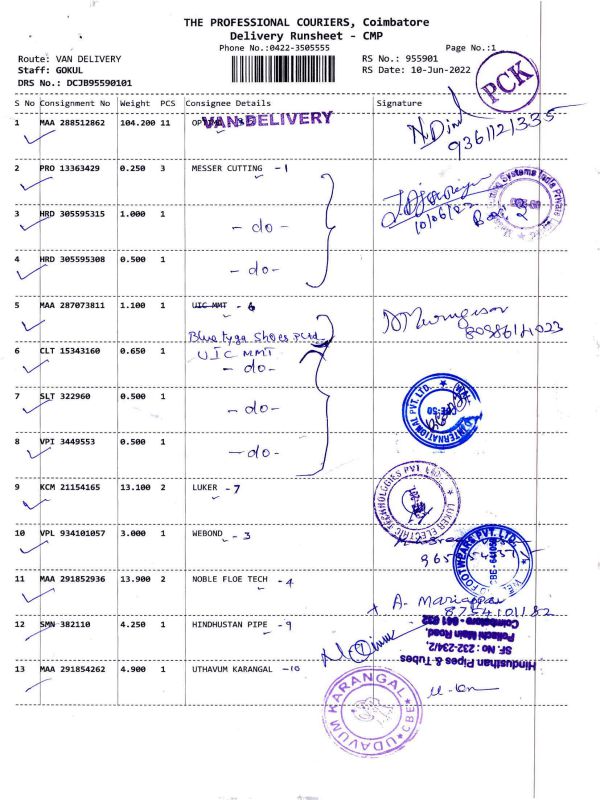 THE PROFESSIONAL COURIERS, Coimbatore
Delivery Runsheet - CMP
Phone No.:0422-3505555 Page No.:1
Route: VAN DELIVERY RS No.: 955901
Staff: GOKUL RS Date: 10-Jun-2022
DRS No.: DCJB95590101
PCK
S No Consignment No Weight PCS Consignee Details Signature
1 MAA 288512862 104.200 11 VAN DELIVERY
9361121335
2 PRO 13363429 0.250 3 MESSER CUTTING - 1
10/06/22
3 HRD 305595315 1.000 1 - do -
4 HRD 305595308 0.500 1 - do -
5 MAA 287073811 1.100 1 UIC MMT - 6
Blue Tyga Shoes Pltd
6 CLT 15343160 0.650 1 UIC MMT
- do -
7 SLT 322960 0.500 1 - do -
8 VPI 3449553 0.500 1 - do -
9 KCM 21154165 13.100 2 LUKER - 7
LUKER ELECTRIC TECHNOLOGIES PVT. LTD.
10 VPL 934101057 3.000 1 WEBOND - 3
FOOTWEARS PVT. LTD.
CBE - 641050
11 MAA 291852936 13.900 2 NOBLE FLOE TECH - 4
A. Mariappan
8754101182
12 SMN 382110 4.250 1 HINDHUSTAN PIPE - 9
Hindusthan Pipes & Tubes
SF. No : 232-234/2,
Pollachi Main Road,
Coimbatore - 641 032
13 MAA 291854262 4.900 1 UTHAVUM KARANGAL - 10
UDAVUM KARANGAL CBE